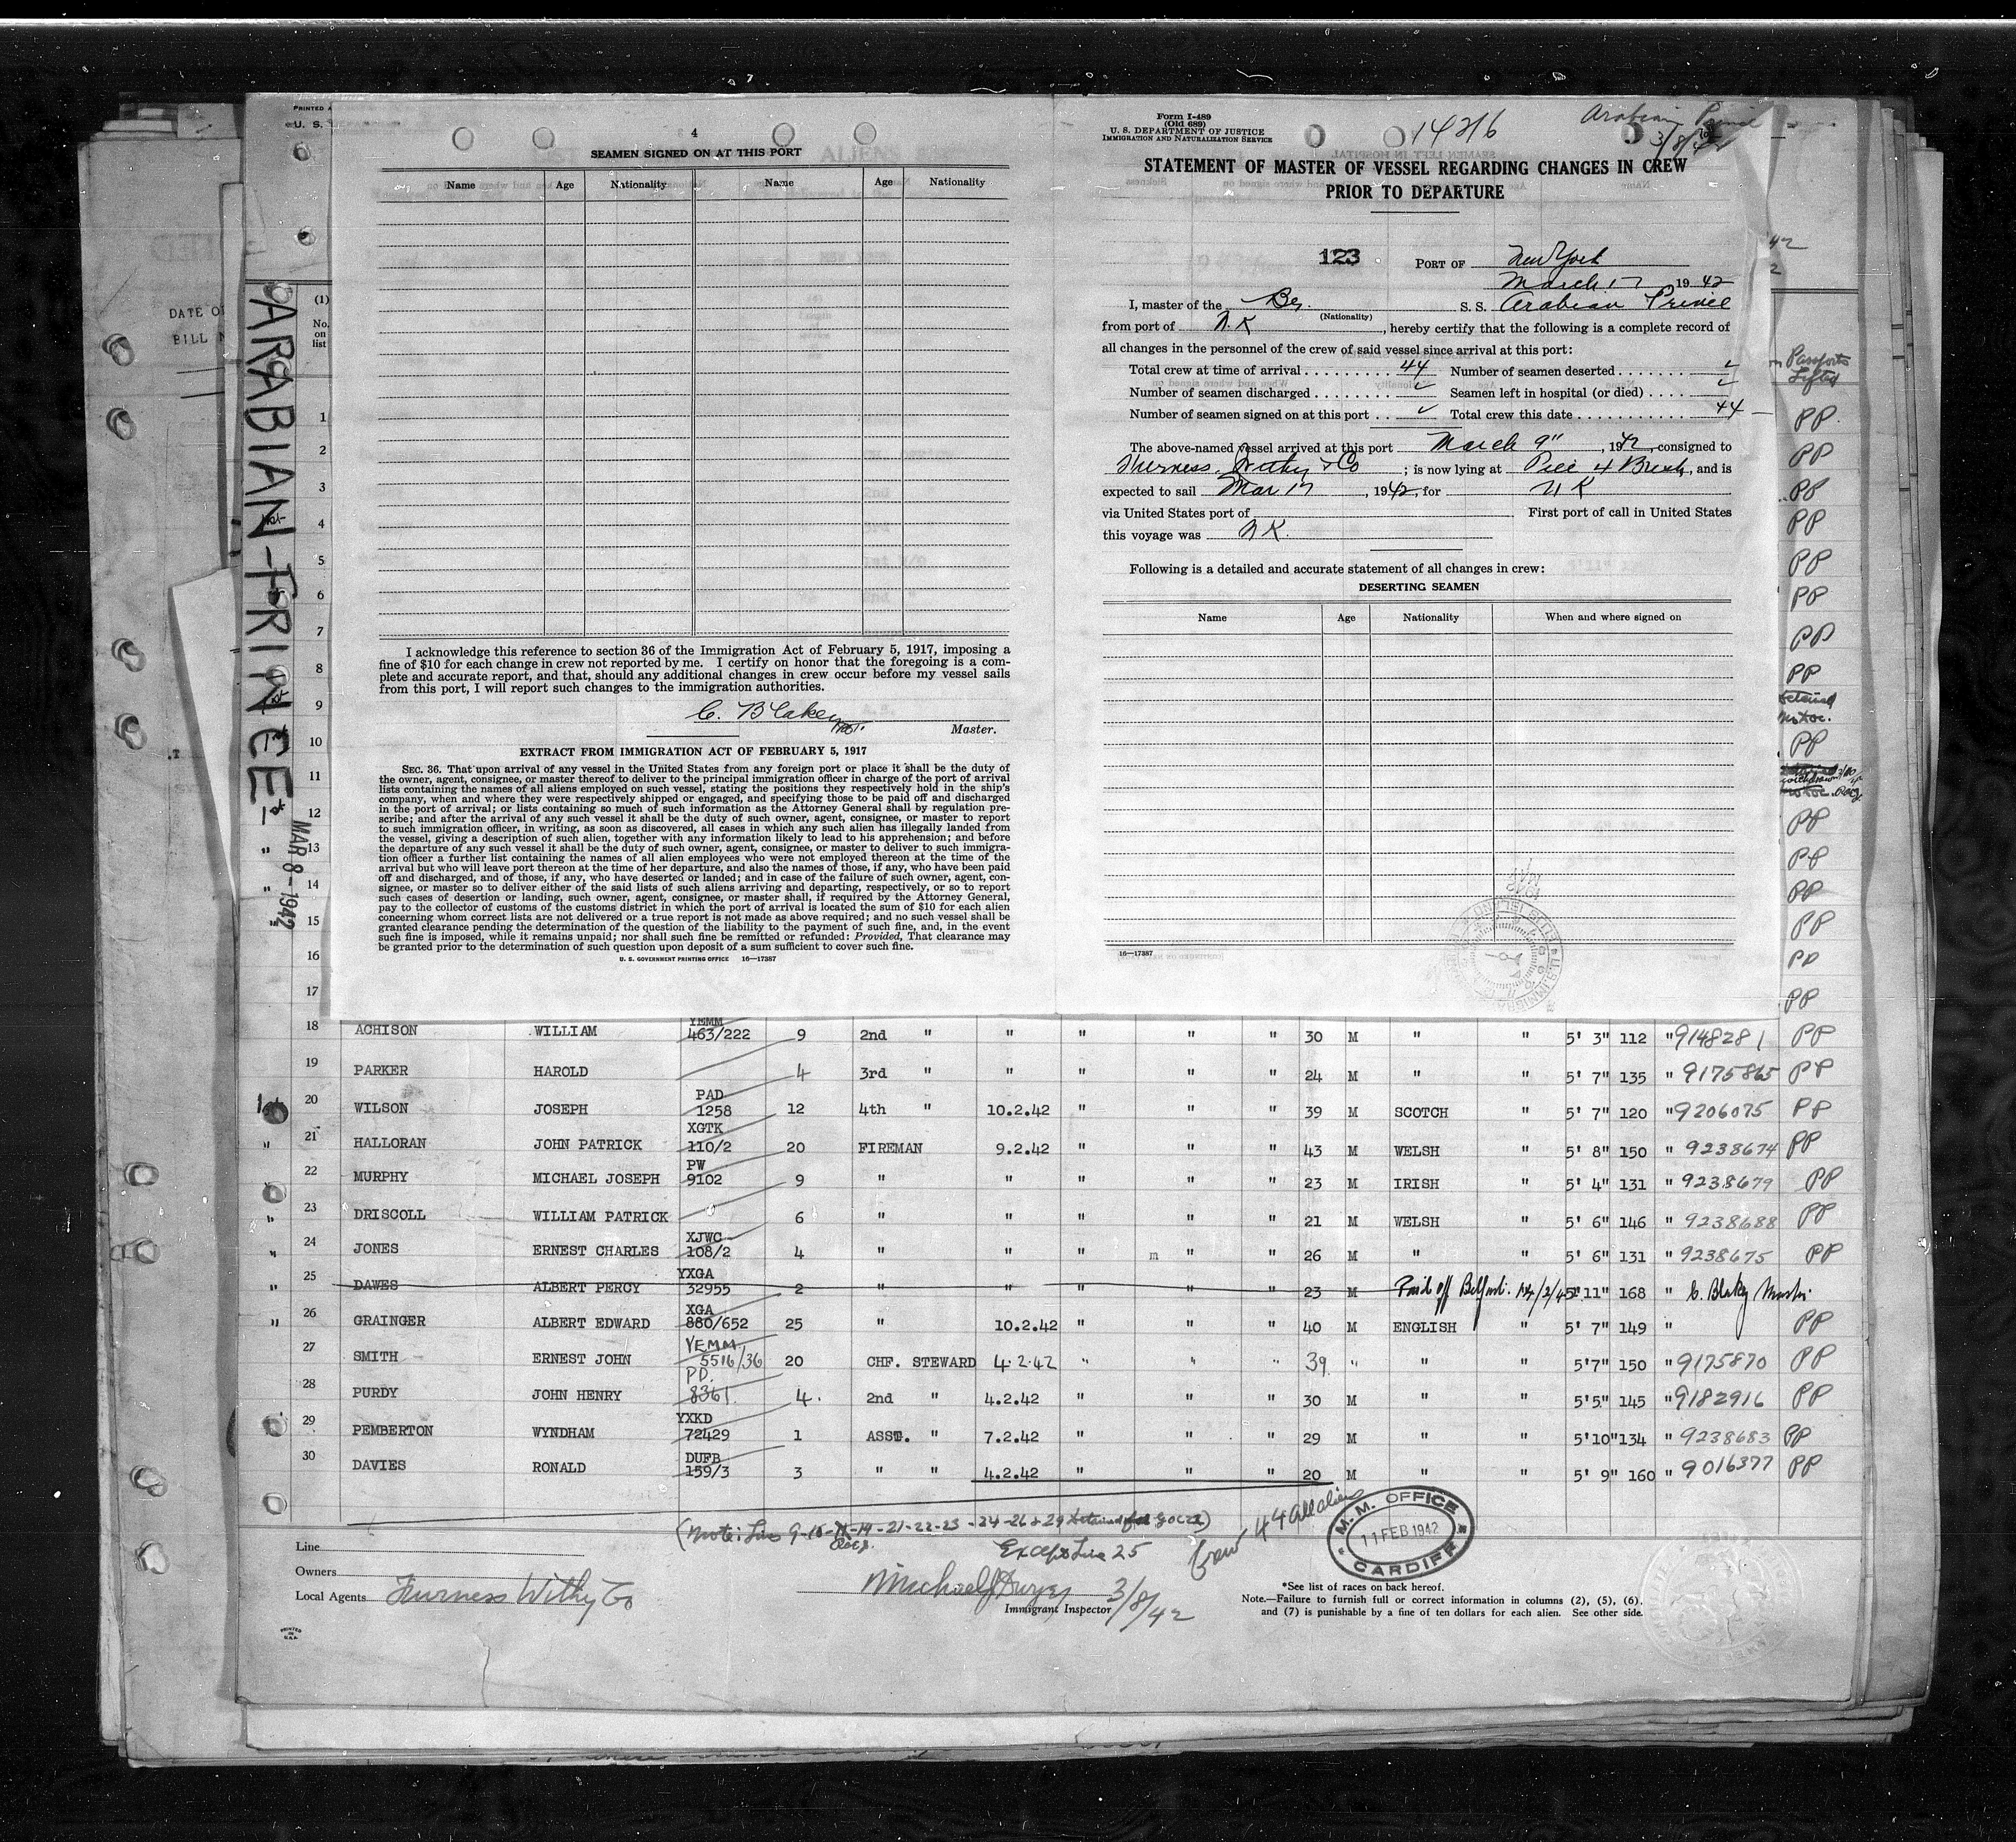 PRINTED
U. S.
4
SEAMEN SIGNED ON AT THIS PORT
Name Age Nationality Name Age Nationality
I acknowledge this reference to section 36 of the Immigration Act of February 5, 1917, imposing a
fine of $10 for each change in crew not reported by me. I certify on honor that the foregoing is a com-
plete and accurate report, and that, should any additional changes in crew occur before my vessel sails
from this port, I will report such changes to the immigration authorities.
C. Blakey
Master.
EXTRACT FROM IMMIGRATION ACT OF FEBRUARY 5, 1917
SEC. 36. That upon arrival of any vessel in the United States from any foreign port or place it shall be the duty of
the owner, agent, consignee, or master thereof to deliver to the principal immigration officer in charge of the port of arrival
lists containing the names of all aliens employed on such vessel, stating the positions they respectively hold in the ship's
company, when and where they were respectively shipped or engaged, and specifying those to be paid off and discharged
in the port of arrival; or lists containing so much of such information as the Attorney General shall by regulation pre-
scribe; and after the arrival of any such vessel it shall be the duty of such owner, agent, consignee, or master to report
to such immigration officer, in writing, as soon as discovered, all cases in which any such alien has illegally landed from
the vessel, giving a description of such alien, together with any information likely to lead to his apprehension; and before
the departure of any such vessel it shall be the duty of such owner, agent, consignee, or master to deliver to such immigra-
tion officer a further list containing the names of all alien employees who were not employed thereon at the time of the
arrival but who will leave port thereon at the time of her departure, and also the names of those, if any, who have been paid
off and discharged, and of those, if any, who have deserted or landed; and in case of the failure of such owner, agent, con-
signee, or master so to deliver either of the said lists of such aliens arriving and departing, respectively, or so to report
such cases of desertion or landing, such owner, agent, consignee, or master shall, if required by the Attorney General,
pay to the collector of customs of the customs district in which the port of arrival is located the sum of $10 for each alien
concerning whom correct lists are not delivered or a true report is not made as above required; and no such vessel shall be
granted clearance pending the determination of the question of the liability to the payment of such fine, and, in the event
such fine is imposed, while it remains unpaid; nor shall such fine be remitted or refunded: Provided, That clearance may
be granted prior to the determination of such question upon deposit of a sum sufficient to cover such fine.
U. S. GOVERNMENT PRINTING OFFICE 16—17387
Form I-489
(Old 689)
U. S. DEPARTMENT OF JUSTICE
IMMIGRATION AND NATURALIZATION SERVICE
14216
Arabian Prince
3/8/42
STATEMENT OF MASTER OF VESSEL REGARDING CHANGES IN CREW
PRIOR TO DEPARTURE
123 PORT OF New York
March 17 1942
I, master of the Br. S. S. Arabian Prince
(Nationality)
from port of U.K , hereby certify that the following is a complete record of
all changes in the personnel of the crew of said vessel since arrival at this port:
Total crew at time of arrival 44 Number of seamen deserted ✓
Number of seamen discharged ✓ Seamen left in hospital (or died) ✓
Number of seamen signed on at this port ✓ Total crew this date 44
The above-named vessel arrived at this port March 9" , 1942, consigned to
Furness, Withy & Co ; is now lying at Pier 4 Bush, and is
expected to sail Mar 17 , 1942, for U K
via United States port of First port of call in United States
this voyage was N.K.
Following is a detailed and accurate statement of all changes in crew:
DESERTING SEAMEN
Name Age Nationality When and where signed on
16—17387
DATE O
BILL N
ARABIAN-PRINCE-
MAR 8-1942
(1)
No.
on
list
Passports
Lifted
1 PP
2 PP
3 PP
4 PP
5 PP
6 PP
7 PP
8 PP
9 Detained
10 PP
11
12 PP
13 PP
14 PP
15 PP
16 PP
17 PP
18 ACHISON WILLIAM YEMM 463/222 9 2nd " " " " " 30 M " " 5' 3" 112 "9148281 PP
19 PARKER HAROLD 4 3rd " " " " " 24 M " " 5' 7" 135 " 9175865 PP
20 WILSON JOSEPH PAD 1258 12 4th " 10.2.42 " " " 39 M SCOTCH " 5' 7" 120 "9206075 PP
21 HALLORAN JOHN PATRICK XGTK 110/2 20 FIREMAN 9.2.42 " " " 43 M WELSH " 5' 8" 150 " 9238674 PP
22 MURPHY MICHAEL JOSEPH PW 9102 9 " " " " " 23 M IRISH " 5' 4" 131 " 9238679 PP
23 DRISCOLL WILLIAM PATRICK 6 " " " " " 21 M WELSH " 5' 6" 146 " 9238688 PP
24 JONES ERNEST CHARLES XJWC 108/2 4 " " " m " " 26 M " " 5' 6" 131 " 9238675 PP
25 DAWES ALBERT PERCY YXGA 32955 2 " " " " " 23 M Paid off Belfast. 14/2/42 5' 11" 168 " C. Blakey Master.
26 GRAINGER ALBERT EDWARD XGA 880/652 25 " 10.2.42 " " " 40 M ENGLISH " 5' 7" 149 " PP
27 SMITH ERNEST JOHN YEMM 5516/36 20 CHF. STEWARD 4.2.42 " " " 39 " " " 5'7" 150 "9175870 PP
28 PURDY JOHN HENRY PD. 8361 4. 2nd " 4.2.42 " " " 30 M " " 5'5" 145 "9182916 PP
29 PEMBERTON WYNDHAM YXKD 72429 1 ASST. " 7.2.42 " " " 29 M " " 5'10" 134 " 9238683 PP
30 DAVIES RONALD DUFB 159/3 3 " " 4.2.42 " " " 20 M " " 5' 9" 160 " 9016377 PP
(Note: Line 9-10-11-19-21-22-23-24-26 & 29 Detained
Except Line 25
Crew 44 All aliens
M. M. OFFICE
11 FEB 1942
CARDIFF
Line
Owners
Local Agents Furness Withy Co
3/8/42
Immigrant Inspector
*See list of races on back hereof.
Note.—Failure to furnish full or correct information in columns (2), (5), (6),
and (7) is punishable by a fine of ten dollars for each alien. See other side.
PRINTED
IN
U.S.A.